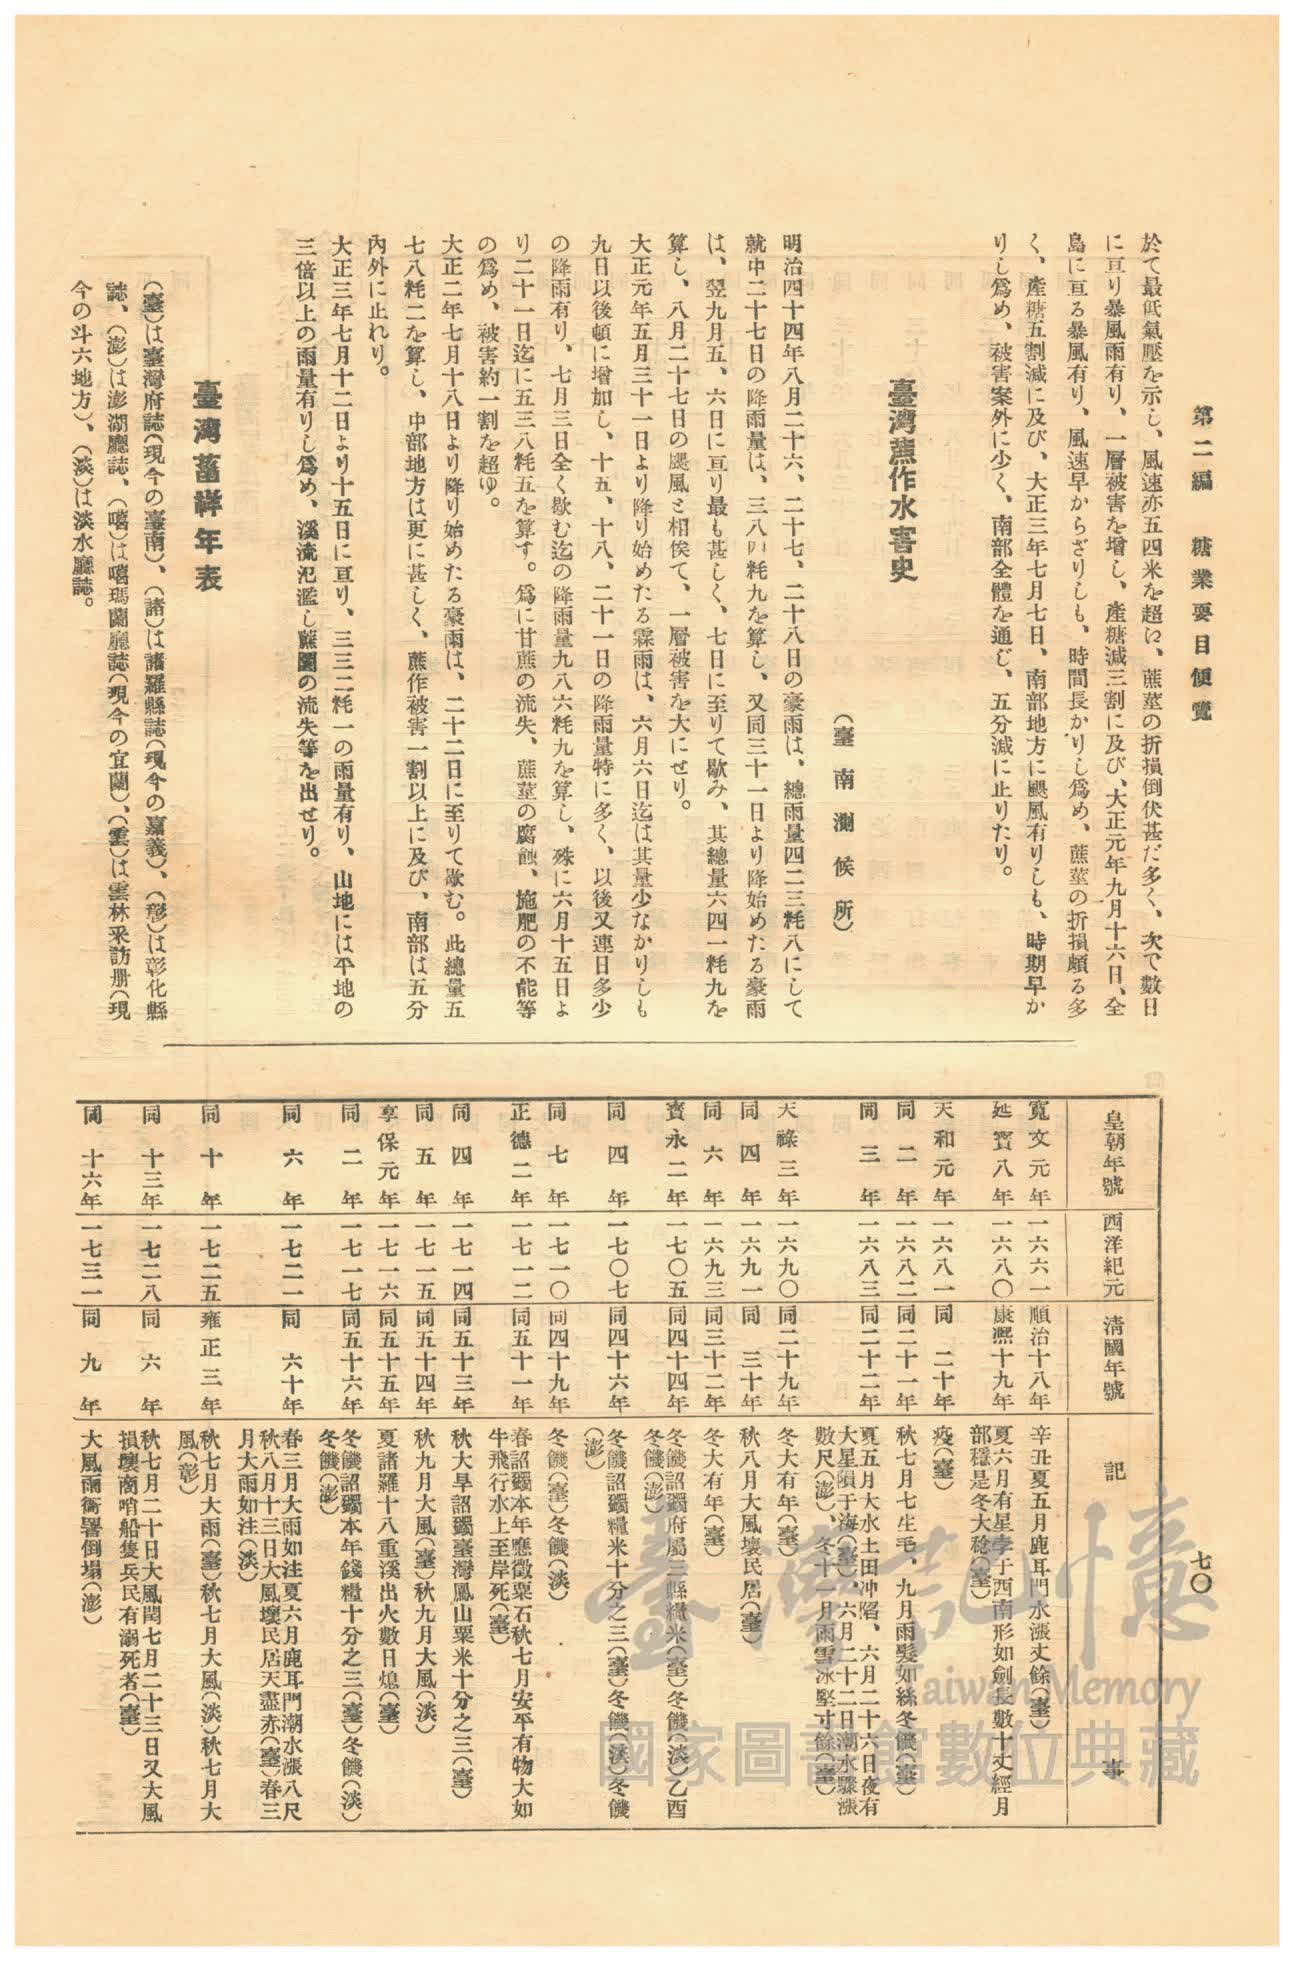 第二編　糖業要目便覽
七〇
於て最低氣壓を示し、風速亦五四米を超ね、蔗莖の折損倒伏甚だ多く、次で數日
に亘り暴風雨有り、一層被害を增し、產糖減三割に及び、大正元年九月十六日、全
島に亘る暴風有り、風速早からざりしも、時間長かりし爲め、蔗莖の折損頗る多
く、產糖五割減に及び、大正三年七月七日、南部地方に颶風有りしも、時期早か
りし爲め、被害案外に少く、南部全體を通じ、五分減に止りたり。
臺灣蔗作水害史
（臺南測候所）
明治四十四年八月二十六、二十七、二十八日の豪雨は、總雨量四二三粍八にして
就中二十七日の降雨量は、三八四粍九を算し、又同三十一日より降始めたる豪雨
は、翌九月五、六日に亘り最も甚しく、七日に至りて歇み、其總量六四一粍九を
算し、八月二十七日の颶風と相俟て、一層被害を大にせり。
大正元年五月三十一日より降り始めたる霖雨は、六月六日迄は其量少なかりしも
九日以後頓に增加し、十五、十八、二十一日の降雨量特に多く、以後又連日多少
の降雨有り、七月三日全く歇む迄の降雨量九八六粍九を算し、殊に六月十五日よ
り二十一日迄に五三八粍五を算す。爲に甘蔗の流失、蔗莖の腐蝕、施肥の不能等
の爲め、被害約一割を超ゆ。
大正二年七月十八日より降り始めたる豪雨は、二十二日に至りて歇む。此總量五
七八粍二を算し、中部地方は更に甚しく、蔗作被害一割以上に及び、南部は五分
內外に止れり。
大正三年七月十二日より十五日に亘り、三三二粍一の雨量有り、山地には平地の
三倍以上の雨量有りし爲め、溪流氾濫し蔗園の流失等を出せり。
臺灣菑祥年表
（臺）は臺灣府誌（現今の臺南）、（諸）は諸羅縣誌（現今の嘉義）、（彰）は彰化縣
誌、（澎）は澎湖廳誌、（噶）は噶瑪蘭廳誌（現今の宜蘭）、（雲）は雲林采訪册（現
今の斗六地方）、（淡）は淡水廳誌。
皇朝年號　西洋紀元　清國年號　記事
寬文元年　一六六一　順治十八年　辛丑夏五月鹿耳門水漲丈餘（臺）
延寶八年　一六八〇　康熙十九年　夏六月有星孛于西南形如劍長數十丈經月
部穩是冬大稔（臺）
天和元年　一六八一　同　二十年　疫（臺）
同二年　一六八二　同二十一年　秋七月七生毛，九月雨髮如絲冬饑（臺）
同三年　一六八三　同二十二年　夏五月大水土田冲陷、六月二十六日夜有
大星隕于海（臺）、六月二十二日潮水驟漲
數尺（澎）、冬十一月雨雪冰堅寸餘（臺）
天祿三年　一六九〇　同二十九年　冬大有年（臺）
同四年　一六九一　同　三十年　秋八月大風壞民居（臺）
同六年　一六九三　同三十二年　冬大有年（臺）
寳永二年　一七〇五　同四十四年　冬饑詔蠲府屬三縣糧米（臺）冬饑（淡）乙酉
冬饑（澎）
同四年　一七〇七　同四十六年　冬饑詔蠲糧米十分之三（臺）冬饑（淡）冬饑
（澎）
同七年　一七一〇　同四十九年　冬饑（臺）冬饑（淡）
正德二年　一七一二　同五十一年　春詔蠲本年應徵粟石秋七月安平有物大如
牛飛行水上至岸死（臺）
同四年　一七一四　同五十三年　秋大旱詔蠲臺灣鳳山粟米十分之三（臺）
同五年　一七一五　同五十四年　秋九月大風（臺）秋九月大風（淡）
享保元年　一七一六　同五十五年　夏諸羅十八重溪出火數日熄（臺）
同二年　一七一七　同五十六年　冬饑詔蠲本年錢糧十分之三（臺）冬饑（淡）
冬饑（澎）
同六年　一七二一　同　六十年　春三月大雨如注夏六月鹿耳門潮水漲八尺
秋八月十三日大風壞民居天盡赤（臺）春三
月大雨如注（淡）
同十年　一七二五　雍正三年　秋七月大雨（臺）秋七月大風（淡）秋七月大
風（彰）
同十三年　一七二八　同六年　秋七月二十日大風閏七月二十三日又大風
損壞商哨船隻兵民有溺死者（臺）
同十六年　一七三一　同九年　大風雨衙署倒塌（澎）
臺灣記憶
Taiwan Memory
國家圖書館數位典藏